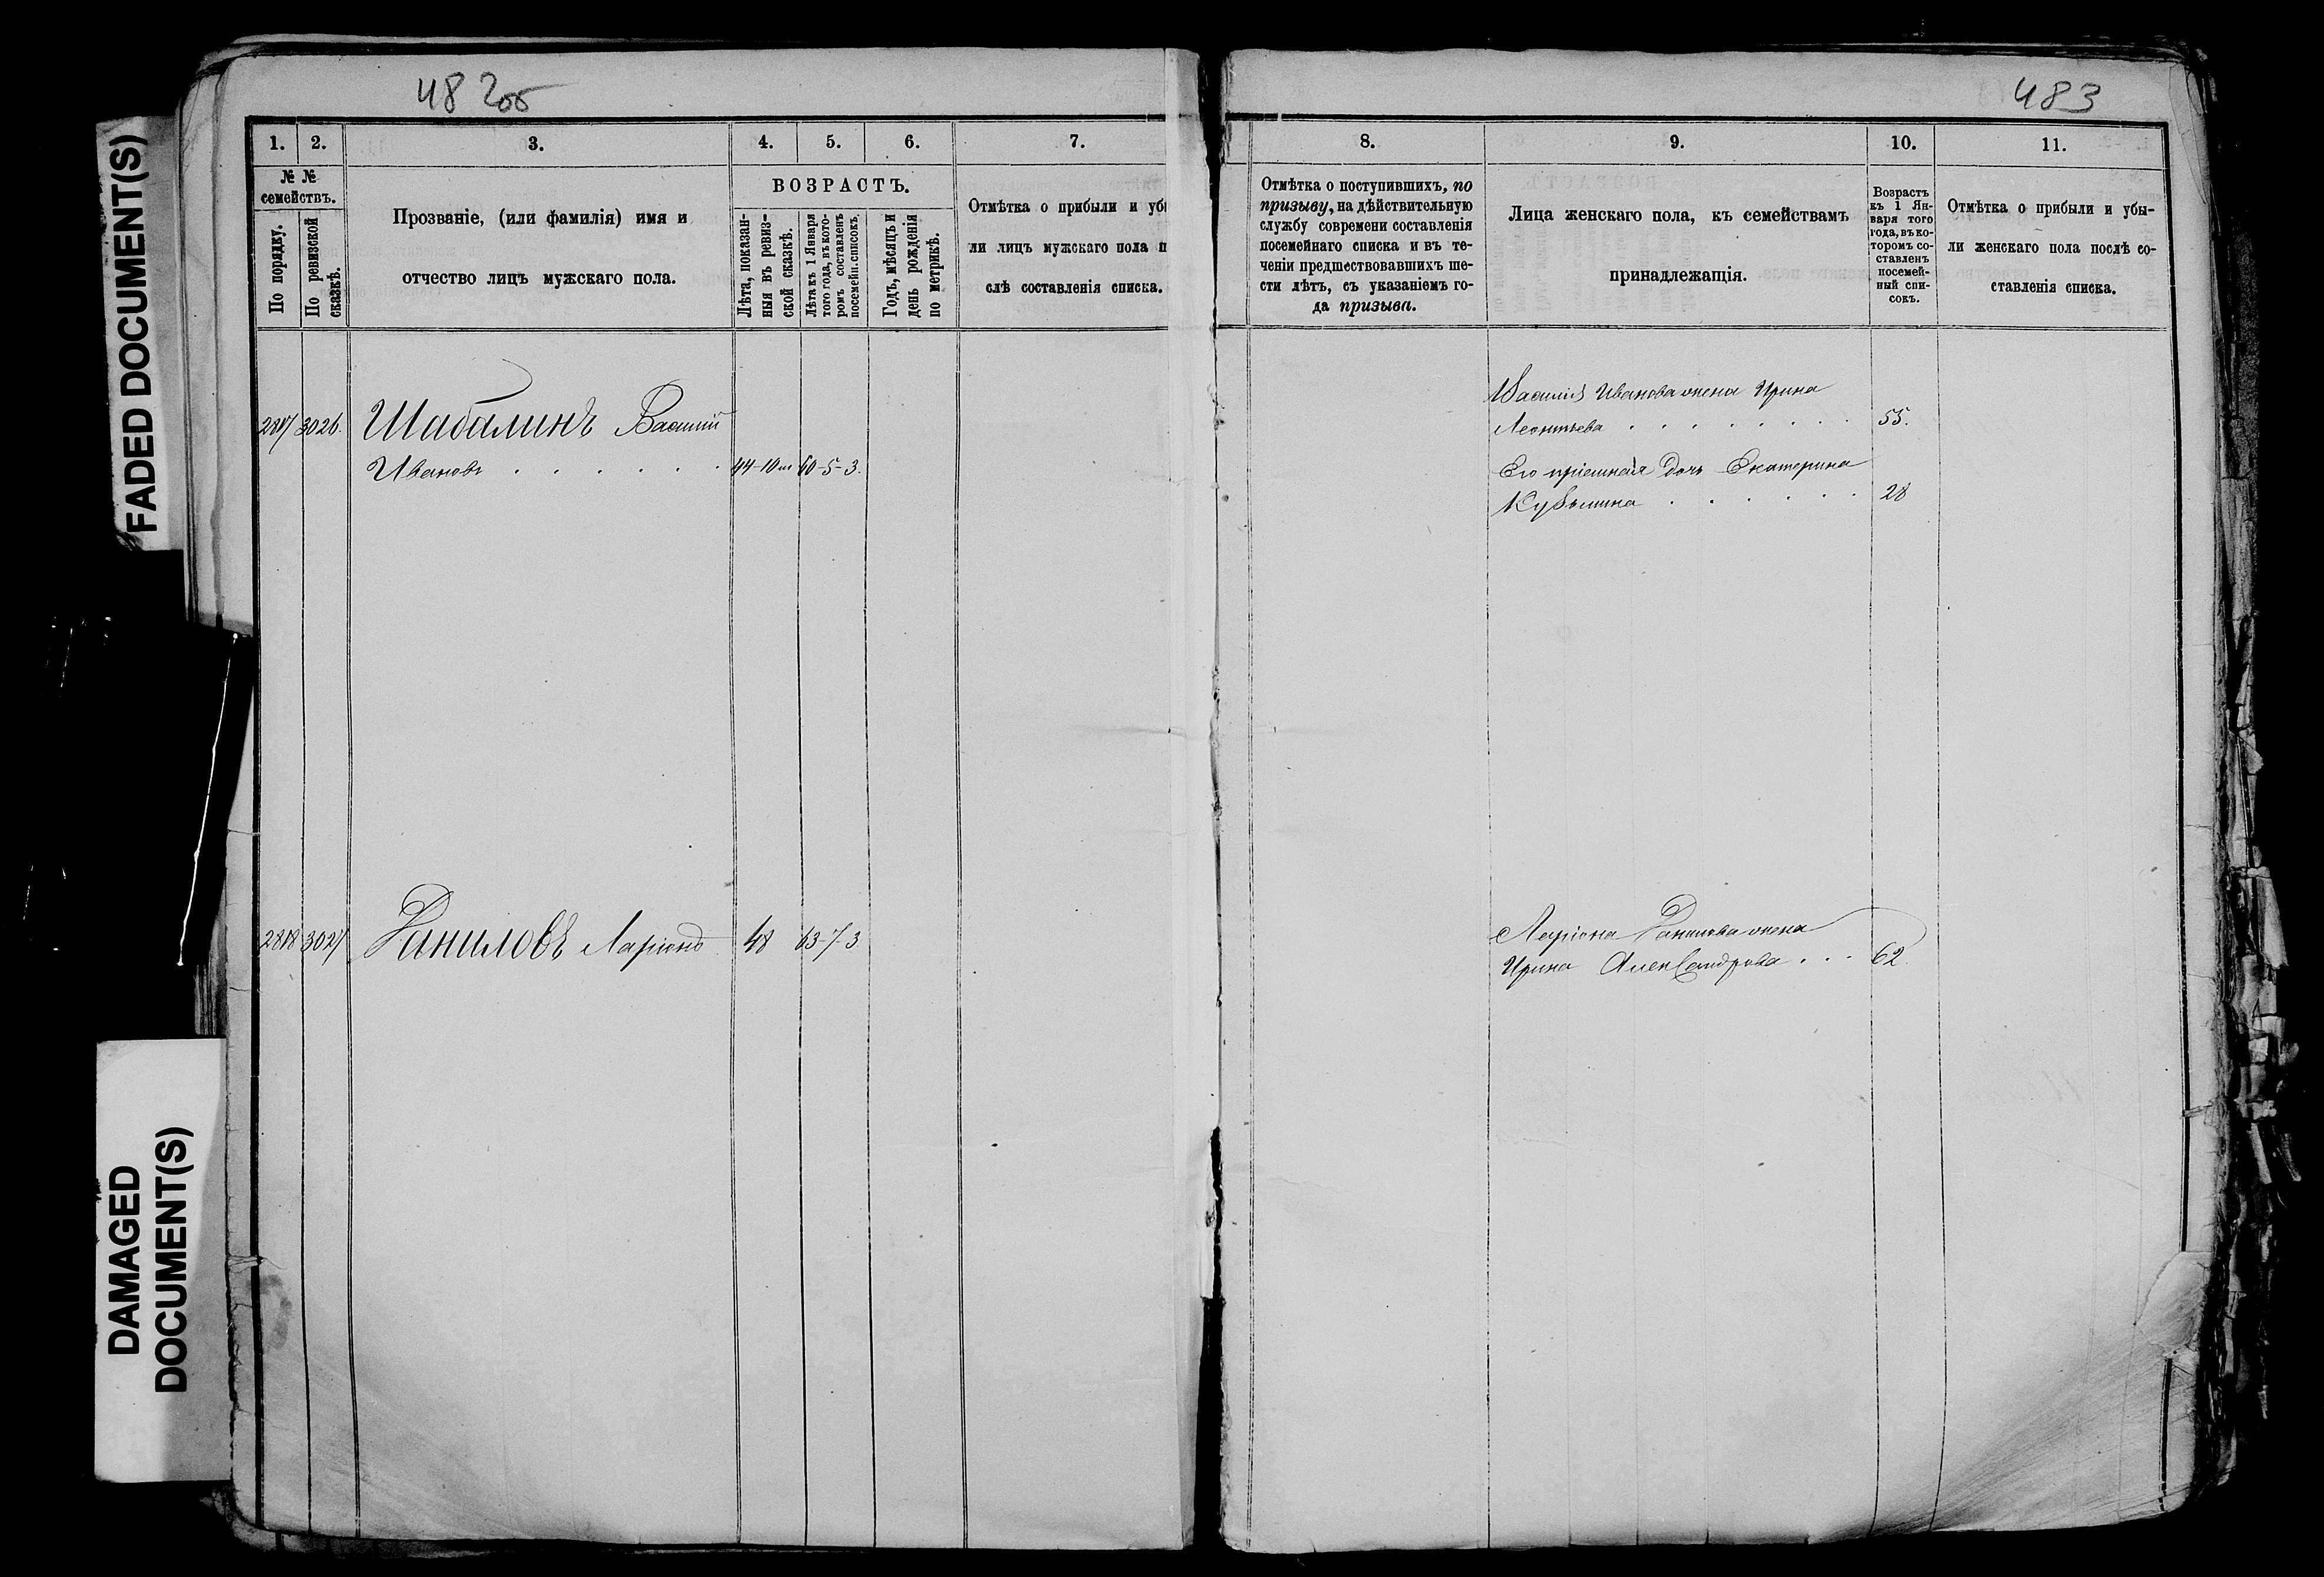 FADED DOCUMENT(S)
DAMAGED
DOCUMENT(S)
48 2об
1. 2. 3. 4. 5. 6. 7.
№ №
семействъ.
По порядку.
По ревизской
сказкѣ.
Прозваніе, (или фамилія) имя и
отчество лицъ мужскаго пола.
ВОЗРАСТЪ.
Лѣта, показан-
ныя въ ревиз-
ской сказкѣ.
Лѣта къ 1 Января
того года, въ кото-
ромъ составленъ
посемейн. списокъ.
Годъ, мѣсяцъ и
день рожденія
по метрикѣ.
Отмѣтка о прибыли и уб
ли лицъ мужскаго пола п
слѣ составленія списка.
2817 3026. Шабалинъ Василій
Ивановъ . . . . . . 44-10м 60-5-3.
2818 3027 Даниловъ Ларіонъ 48 63-7-3
483
8. 9. 10. 11.
Отмѣтка о поступившихъ, по
призыву, на дѣйствительную
службу современи составленія
посемейнаго списка и въ те-
ченіи предшествовавшихъ ше-
сти лѣтъ, съ указаніемъ го-
да призыва.
Лица женскаго пола, къ семействамъ
принадлежащія.
Возрастъ
къ 1 Ян-
варя того
года, въ ко-
торомъ со-
ставленъ
посемей-
ный спи-
сокъ.
Отмѣтка о прибыли и убы-
ли женскаго пола послѣ со-
ставленія списка.
Василія Иванова жена Ирина
Леонтьева . . . . . . . 55.
Его пріемная дочь Екатерина
Кузьмина . . . . . 28
Ларіона Данилова жена
Ирина Александрова . . . 62.